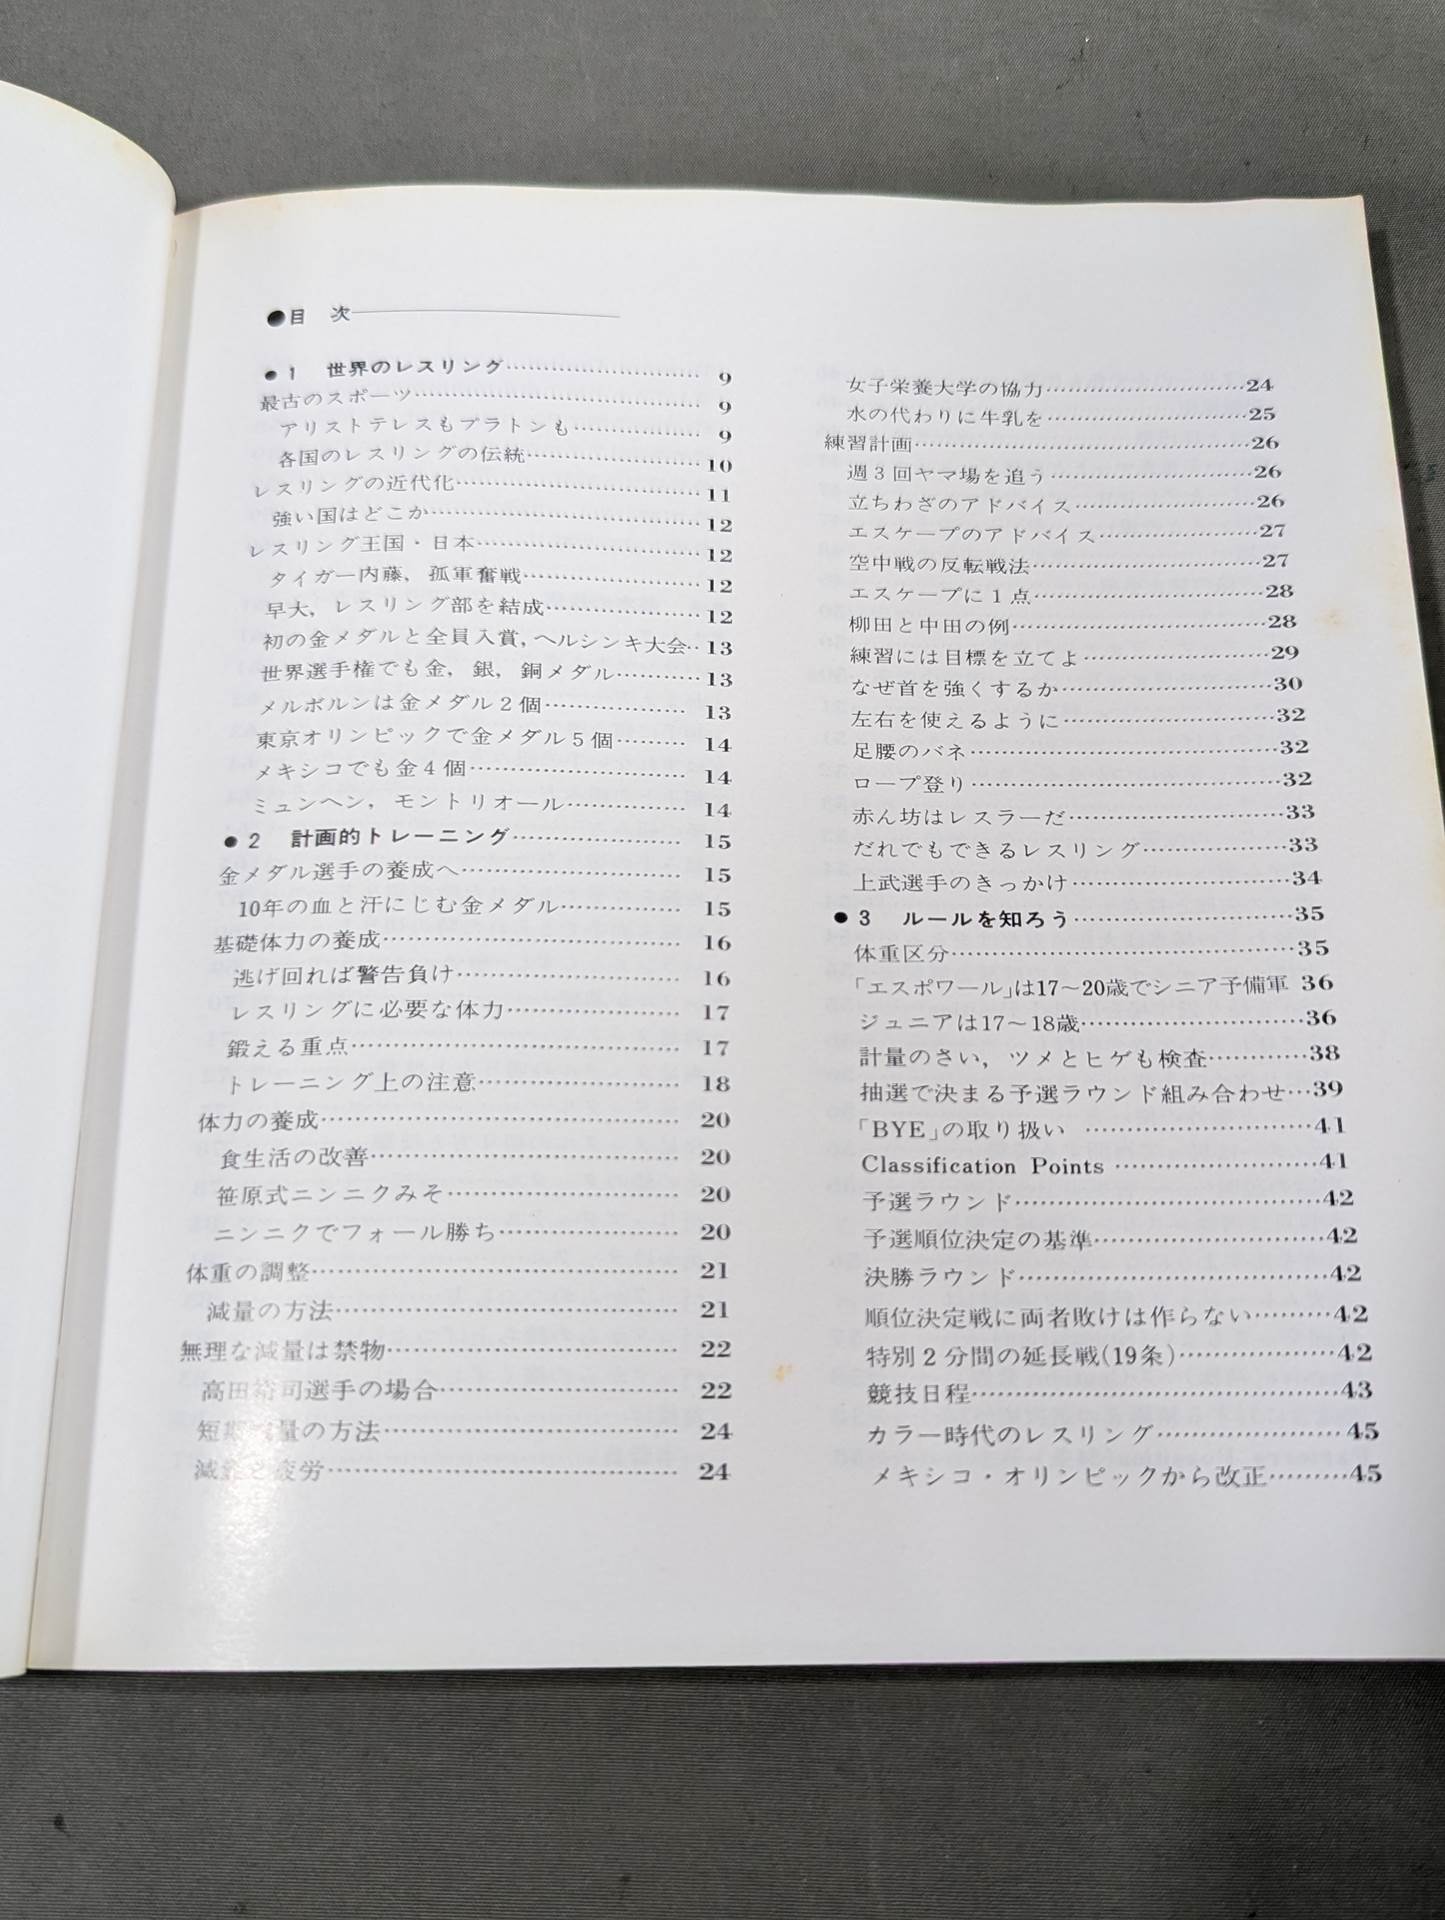 ●目　次
●1　世界のレスリング……………………9
最古のスポーツ……………………9
アリストテレスもプラトンも……………………9
各国のレスリングの伝統……………………10
レスリングの近代化……………………11
強い国はどこか……………………12
レスリング王国・日本……………………12
タイガー内藤，孤軍奮戦……………………12
早大，レスリング部を結成……………………12
初の金メダルと全員入賞，ヘルシンキ大会‥13
世界選手権でも金，銀，銅メダル…………13
メルボルンは金メダル2個………………13
東京オリンピックで金メダル5個………14
メキシコでも金4個……………………14
ミュンヘン，モントリオール……………14
●2　計画的トレーニング………………15
金メダル選手の養成へ……………………15
10年の血と汗にじむ金メダル……………15
基礎体力の養成……………………16
逃げ回れば警告負け……………………16
レスリングに必要な体力………………17
鍛える重点……………………17
トレーニング上の注意……………………18
体力の養成……………………20
食生活の改善……………………20
笹原式ニンニクみそ……………………20
ニンニクでフォール勝ち………………20
体重の調整……………………21
減量の方法……………………21
無理な減量は禁物……………………22
高田裕司選手の場合……………………22
短期減量の方法……………………24
減量と疲労……………………24
女子栄養大学の協力……………………24
水の代わりに牛乳を……………………25
練習計画……………………26
週3回ヤマ場を追う……………………26
立ちわざのアドバイス……………………26
エスケープのアドバイス………………27
空中戦の反転戦法……………………27
エスケープに1点……………………28
柳田と中田の例……………………28
練習には目標を立てよ……………………29
なぜ首を強くするか……………………30
左右を使えるように……………………32
足腰のバネ……………………32
ロープ登り……………………32
赤ん坊はレスラーだ……………………33
だれでもできるレスリング………………33
上武選手のきっかけ……………………34
●3　ルールを知ろう……………………35
体重区分……………………35
「エスポワール」は17〜20歳でシニア予備軍 36
ジュニアは17〜18歳……………………36
計量のさい，ツメとヒゲも検査…………38
抽選で決まる予選ラウンド組み合わせ…39
「BYE」の取り扱い ……………………41
Classification Points ……………………41
予選ラウンド……………………42
予選順位決定の基準……………………42
決勝ラウンド……………………42
順位決定戦に両者敗けは作らない………42
特別2分間の延長戦(19条)………………42
競技日程……………………43
カラー時代のレスリング………………45
メキシコ・オリンピックから改正………45